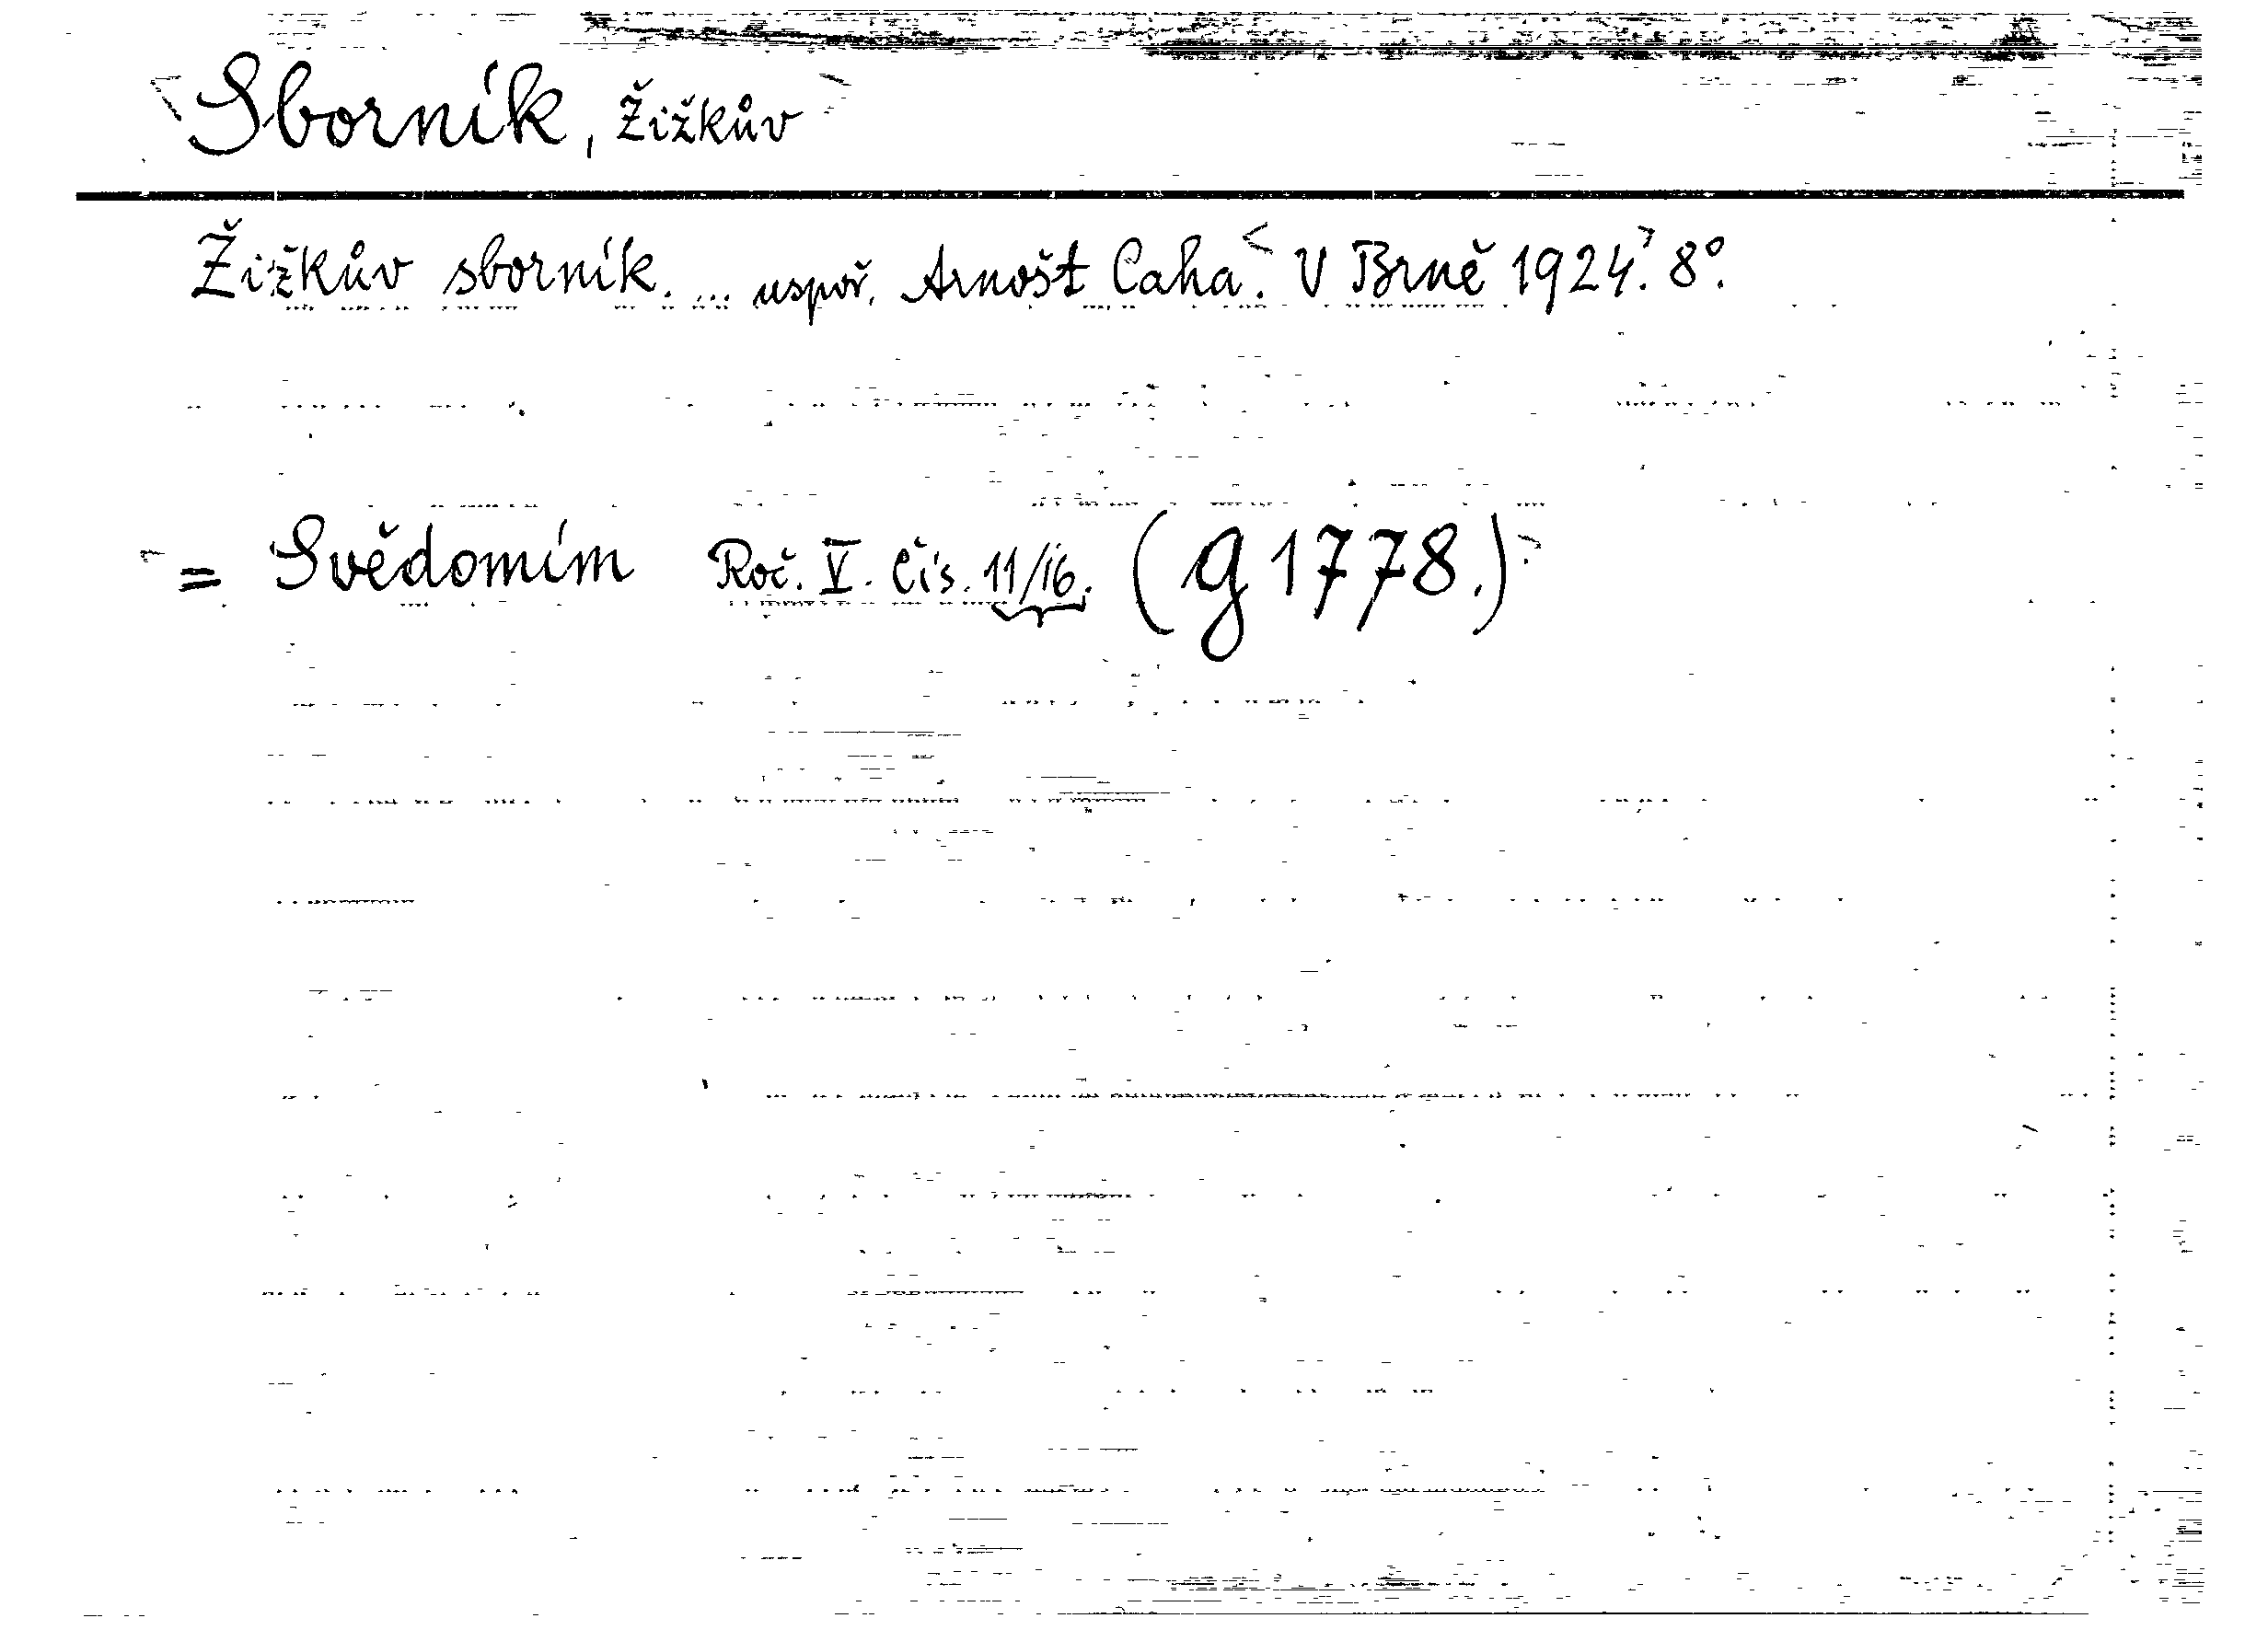 Sborník, Žižkův
Žižkův sborník. ... uspoř. Arnošt Caha. V Brně 1924. 8°.
= Svědomím Roč. V. Čís. 11/16. (g 1778.)